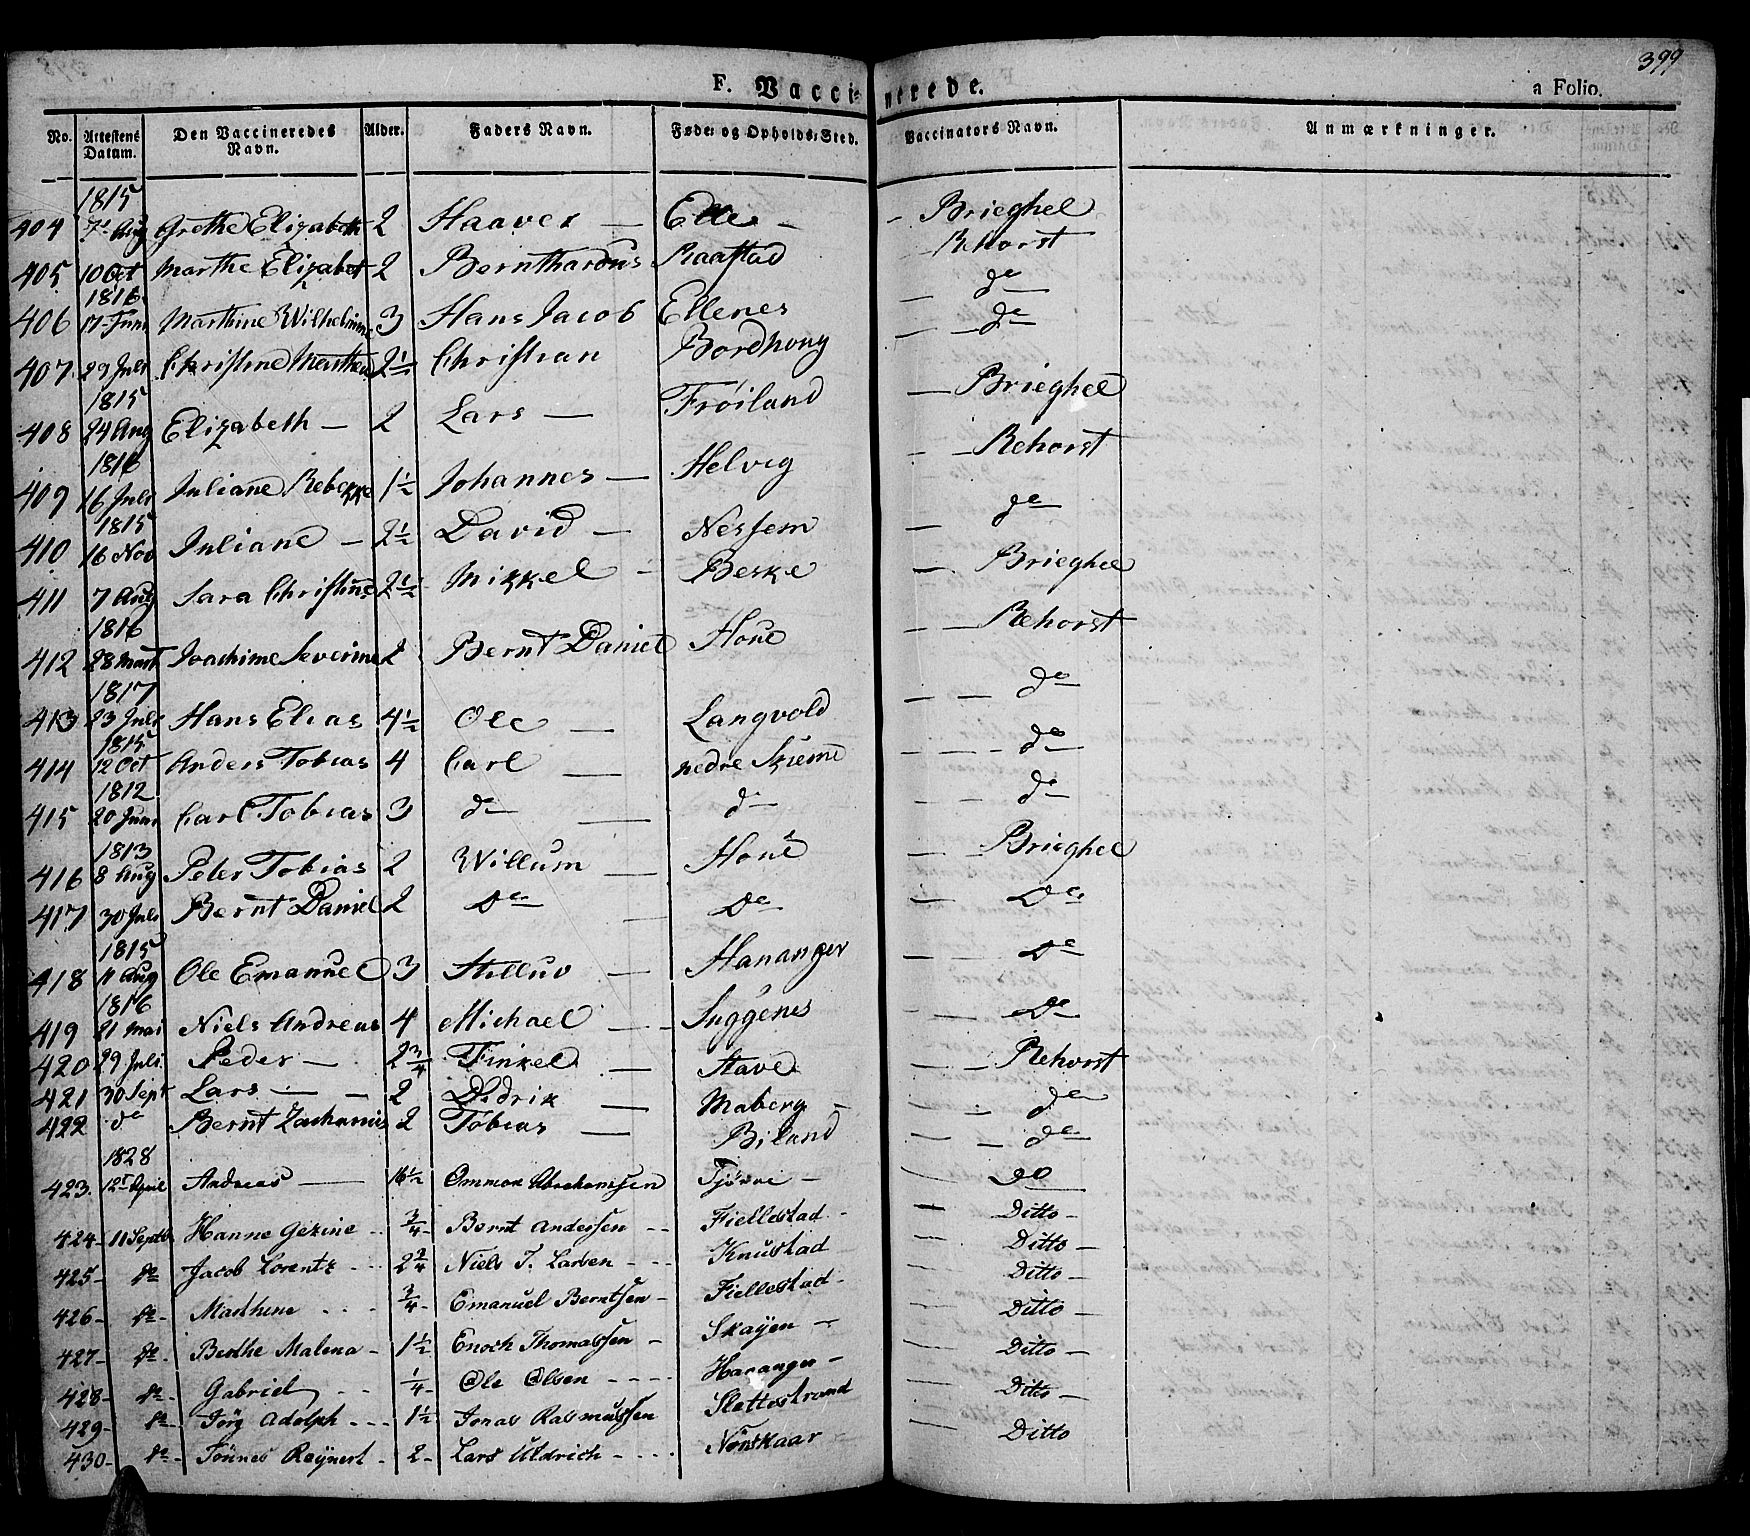 399
F. Vaccinerede. a Folio.
No. Attestens Datum. Den Vaccineredes Navn. Alder. Faders Navn. Føde- og Opholds-Sted. Vaccinators Navn. Anmærkninger.
1815
404 7d Aug Grethe Elizabeth 2 Haaver — Elle — – Brieghel
405 10 Oct Marthe Elizabet 2 Bernthardus Raastad Rehorst
1816
406 17 Juni Marthine Wilhelmine 3 Hans Jacob Ellenes — de
407 29 Juli Christine Marthea 2½ Christian Bordhoug — – de
1815
408 24 Aug Elizabeth — 2 Lars — Froiland — Brieghel
1816
409 16 Juli Juliane Rebekke 1½ Johannes — Helvig – – Rehorst
1815
410 16 Nov Juliane — 2½ David — Nessem — de
411 7 Aug Sara Christine 2½ Mikkel – Beske — Brieghel
1816
412 28 Mart Joachime Severine 2 Bernt Daniel Houe – — Rehorst
1817
413 23 Juli Hans Elias 4½ Ole — Langvold — — de
1815
414 12 Oct Anders Tobias 4 Carl — nedre Skieme — — – de
1812
415 20 Juni Carl Tobias 3 d — d — – – de
1813
416 8 Aug Peter Tobias 2 Willum — Houe — — Brieghel
417 30 Juli Bernt Daniel 2 De — De – — De
1815
418 11 Aug Ole Emanuel 3 — Hananger — — De
1816
419 21 Mai Niels Andreas 4 Michael — Suggenes — — De
420 29 Juli Peder — 2¾ Finkel — Stave — — Rehorst
421 30 Sept Lars — – 2 Didrik — Maberg – — – de
422 de Bernt Zacharias 2 Tobias — Biland — – de
1828
423. 12t April Andreas — 16½ Ommon Abrahamsen Tjørve – — — do
424– 11 Septb Hanne Gezine – – ¾ Bernt Andersen – – Fiellestad – — Ditto –
425– do Jacob Lorentz – – – 2¾ Niels T. Larsen – – – Knustad — Ditto –
426– do – Marthine – – – ¾– Emanuel Berntsen – Fiellestad – — Ditto –
427– do – Berthe Malena – 1½ Enoch Thomassen – Skayen – — Ditto –
428– do – Gabriel – – ¼– Ole Olsen – – – – Hananger – — Ditto –
429– do – Jörg Adolph – – – 1½ Jonas Rasmussen Slettestrand — Ditto –
430– do – Tönnes Reynert – 2– Lars Uldrich – – – – Nonskaar — Ditto